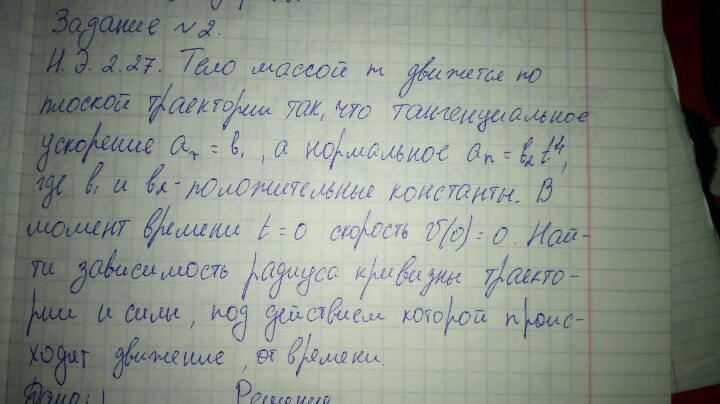 Задание №2.
Н.Э.2.27. Тело массой m движется по
плоской траектории так, что тангенциальное
ускорение aτ = b₁, а нормальное aₙ = b₂t⁴,
где b₁ и b₂ - положительные константы. В
момент времени t = 0 скорость v(0) = 0. Най-
ти зависимость радиуса кривизны траекто-
рии и силы, под действием которой проис-
ходит движение, от времени.
Дано: Решение